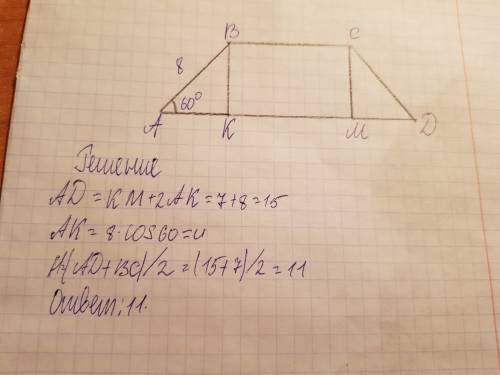 B C
8
60°
A K M D
Решение
AD = KM + 2AK = 7 + 8 = 15
AK = 8 · cos60 = 4
(AD + BC)/2 = (15 + 7)/2 = 11
Ответ: 11.